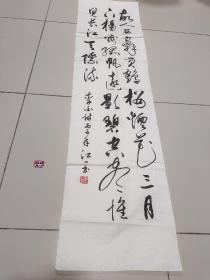 故人西辞黄鹤楼烟花三月
下扬州孤帆远影碧空尽惟
见长江天际流 李白诗丙年江书